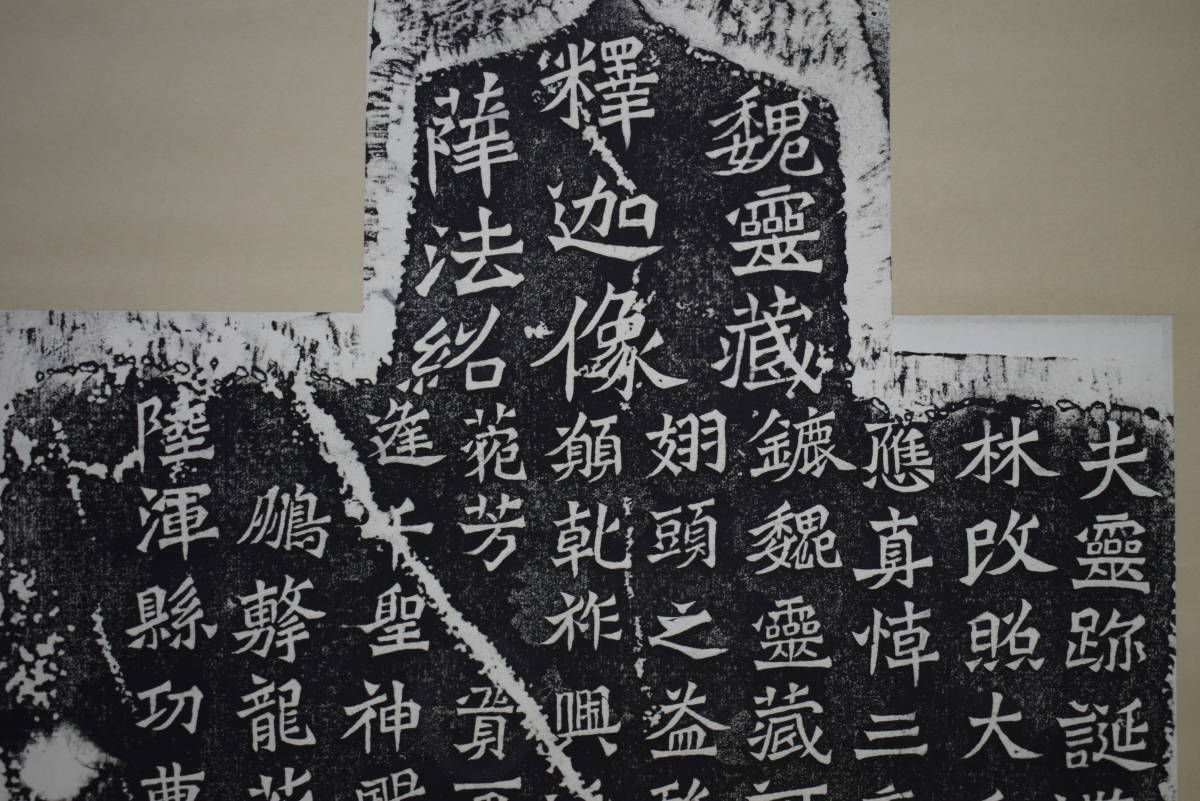 魏靈藏
釋迦像
薛法紹
夫靈跡誕
林改照大
應真悼三
鑣魏靈藏
翅頭之益
願乾祚興
菀芳
逢千聖神
鵬擊龍花
陸渾縣功曹